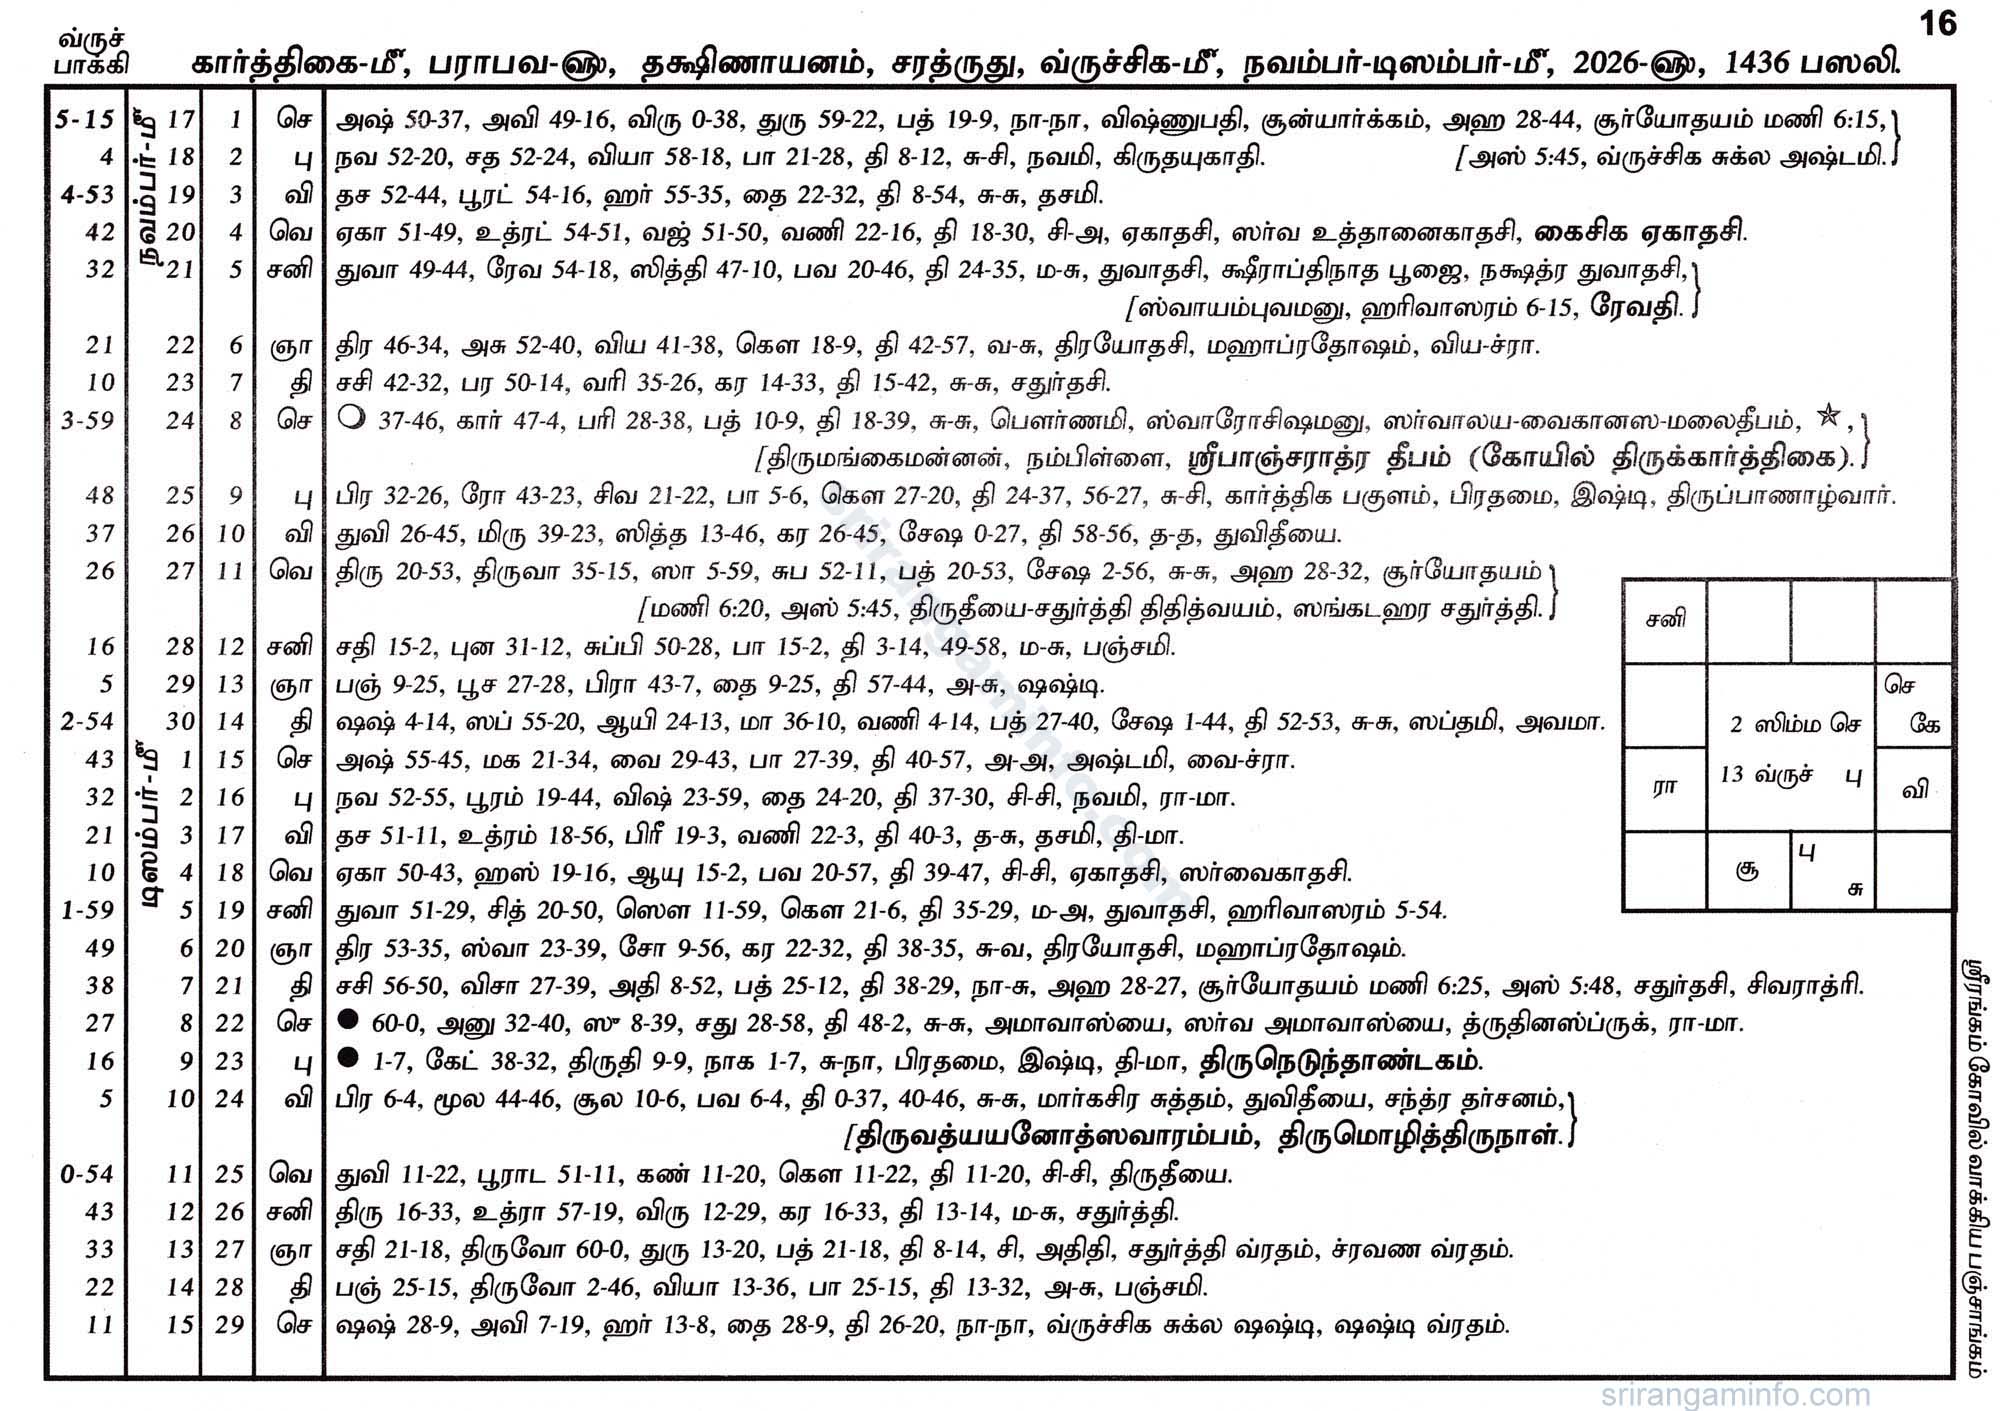 16
வ்ருச்
பாக்கி
கார்த்திகை-மீ, பராபவ-ஹு, தக்ஷிணாயனம், சரத்ருது, வ்ருச்சிக-மீ, நவம்பர்-டிஸம்பர்-மீ, 2026-ஹு, 1436 பஸலி.
நவம்பர்-மீ
5-15 17 1 செ அஷ் 50-37, அவி 49-16, விரு 0-38, துரு 59-22, பத் 19-9, நா-நா, விஷ்ணுபதி, சூன்யார்க்கம், அஹ 28-44, சூர்யோதயம் மணி 6:15,}
4 18 2 பு நவ 52-20, சத 52-24, வியா 58-18, பா 21-28, தி 8-12, சு-சி, நவமி, கிருதயுகாதி. [அஸ் 5:45, வ்ருச்சிக சுக்ல அஷ்டமி.}
4-53 19 3 வி தச 52-44, பூரட் 54-16, ஹர் 55-35, தை 22-32, தி 8-54, சு-சு, தசமி.
42 20 4 வெ ஏகா 51-49, உத்ரட் 54-51, வஜ் 51-50, வணி 22-16, தி 18-30, சி-அ, ஏகாதசி, ஸர்வ உத்தானைகாதசி, கைசிக ஏகாதசி.
32 21 5 சனி துவா 49-44, ரேவ 54-18, ஸித்தி 47-10, பவ 20-46, தி 24-35, ம-சு, துவாதசி, க்ஷீராப்திநாத பூஜை, நக்ஷத்ர துவாதசி,}
[ஸ்வாயம்புவமனு, ஹரிவாஸரம் 6-15, ரேவதி.}
21 22 6 ஞா திர 46-34, அசு 52-40, விய 41-38, கௌ 18-9, தி 42-57, வ-சு, திரயோதசி, மஹாப்ரதோஷம், விய-ச்ரா.
10 23 7 தி சசி 42-32, பர 50-14, வரி 35-26, கர 14-33, தி 15-42, சு-சு, சதுர்தசி.
3-59 24 8 செ ○ 37-46, கார் 47-4, பரி 28-38, பத் 10-9, தி 18-39, சு-சு, பௌர்ணமி, ஸ்வாரோசிஷமனு, ஸர்வாலய-வைகானஸ-மலைதீபம், ☆,}
[திருமங்கைமன்னன், நம்பிள்ளை, ஸ்ரீபாஞ்சராத்ர தீபம் (கோயில் திருக்கார்த்திகை).}
48 25 9 பு பிர 32-26, ரோ 43-23, சிவ 21-22, பா 5-6, கௌ 27-20, தி 24-37, 56-27, சு-சி, கார்த்திக பகுளம், பிரதமை, இஷ்டி, திருப்பாணாழ்வார்.
37 26 10 வி துவி 26-45, மிரு 39-23, ஸித்த 13-46, கர 26-45, சேஷ 0-27, தி 58-56, த-த, துவிதீயை.
26 27 11 வெ திரு 20-53, திருவா 35-15, ஸா 5-59, சுப 52-11, பத் 20-53, சேஷ 2-56, சு-சு, அஹ 28-32, சூர்யோதயம்}
[மணி 6:20, அஸ் 5:45, திருதீயை-சதுர்த்தி திதித்வயம், ஸங்கடஹர சதுர்த்தி.}
16 28 12 சனி சதி 15-2, புன 31-12, சுப்பி 50-28, பா 15-2, தி 3-14, 49-58, ம-சு, பஞ்சமி.
5 29 13 ஞா பஞ் 9-25, பூச 27-28, பிரா 43-7, தை 9-25, தி 57-44, அ-சு, ஷஷ்டி.
2-54 30 14 தி ஷஷ் 4-14, ஸப் 55-20, ஆயி 24-13, மா 36-10, வணி 4-14, பத் 27-40, சேஷ 1-44, தி 52-53, சு-சு, ஸப்தமி, அவமா.
டிஸம்பர்-மீ
43 1 15 செ அஷ் 55-45, மக 21-34, வை 29-43, பா 27-39, தி 40-57, அ-அ, அஷ்டமி, வை-ச்ரா.
32 2 16 பு நவ 52-55, பூரம் 19-44, விஷ் 23-59, தை 24-20, தி 37-30, சி-சி, நவமி, ரா-மா.
21 3 17 வி தச 51-11, உத்ரம் 18-56, பிரீ 19-3, வணி 22-3, தி 40-3, த-சு, தசமி, தி-மா.
10 4 18 வெ ஏகா 50-43, ஹஸ் 19-16, ஆயு 15-2, பவ 20-57, தி 39-47, சி-சி, ஏகாதசி, ஸர்வைகாதசி.
1-59 5 19 சனி துவா 51-29, சித் 20-50, ஸௌ 11-59, கௌ 21-6, தி 35-29, ம-அ, துவாதசி, ஹரிவாஸரம் 5-54.
49 6 20 ஞா திர 53-35, ஸ்வா 23-39, சோ 9-56, கர 22-32, தி 38-35, சு-வ, திரயோதசி, மஹாப்ரதோஷம்.
38 7 21 தி சசி 56-50, விசா 27-39, அதி 8-52, பத் 25-12, தி 38-29, நா-சு, அஹ 28-27, சூர்யோதயம் மணி 6:25, அஸ் 5:48, சதுர்தசி, சிவராத்ரி.
27 8 22 செ ● 60-0, அனு 32-40, ஸு 8-39, சது 28-58, தி 48-2, சு-சு, அமாவாஸ்யை, ஸர்வ அமாவாஸ்யை, த்ருதினஸ்ப்ருக், ரா-மா.
16 9 23 பு ● 1-7, கேட் 38-32, திருதி 9-9, நாக 1-7, சு-நா, பிரதமை, இஷ்டி, தி-மா, திருநெடுந்தாண்டகம்.
5 10 24 வி பிர 6-4, மூல 44-46, சூல 10-6, பவ 6-4, தி 0-37, 40-46, சு-சு, மார்கசிர சுத்தம், துவிதீயை, சந்த்ர தர்சனம்,}
[திருவத்யயனோத்ஸவாரம்பம், திருமொழித்திருநாள்.}
0-54 11 25 வெ துவி 11-22, பூராட 51-11, கண் 11-20, கௌ 11-22, தி 11-20, சி-சி, திருதீயை.
43 12 26 சனி திரு 16-33, உத்ரா 57-19, விரு 12-29, கர 16-33, தி 13-14, ம-சு, சதுர்த்தி.
33 13 27 ஞா சதி 21-18, திருவோ 60-0, துரு 13-20, பத் 21-18, தி 8-14, சி, அதிதி, சதுர்த்தி வ்ரதம், ச்ரவண வ்ரதம்.
22 14 28 தி பஞ் 25-15, திருவோ 2-46, வியா 13-36, பா 25-15, தி 13-32, அ-சு, பஞ்சமி.
11 15 29 செ ஷஷ் 28-9, அவி 7-19, ஹர் 13-8, தை 28-9, தி 26-20, நா-நா, வ்ருச்சிக சுக்ல ஷஷ்டி, ஷஷ்டி வ்ரதம்.
சனி
செ
கே
2 ஸிம்ம செ
13 வ்ருச் பு
ரா
வி
சூ
பு
சு
ஸ்ரீரங்கம் கோவில் வாக்கிய பஞ்சாங்கம்
sriranganinfo.com
srirangaminfo.com